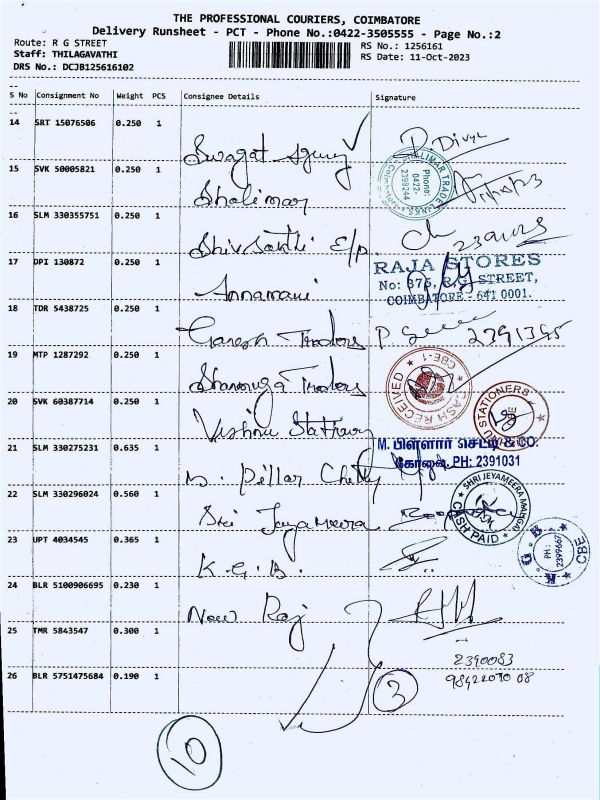 THE PROFESSIONAL COURIERS, COIMBATORE
Delivery Runsheet - PCT - Phone No.:0422-3505555 - Page No.:2
Route: R G STREET
Staff: THILAGAVATHI
DRS No.: DCJB125616102
RS No.: 1256161
RS Date: 11-Oct-2023
S No Consignment No Weight PCS Consignee Details Signature
14 SRT 15076506 0.250 1
Swagat Agency
15 SVK 50005821 0.250 1
Shalimar
SHALIMAR TRADE LINKS
Phone: 0422-2399244
16 SLM 330355751 0.250 1
Shiv Sakthi E/p.
17 DPI 130872 0.250 1
Annamani
RAJA STORES
No: 376, R.G. STREET,
COIMBATORE - 641 0001.
18 TDR 5438725 0.250 1
Ganesh Traders
2391395
19 MTP 1287292 0.250 1
Shanmuga Traders
CASH RECEIVED
CBE-1
20 SVK 60387714 0.250 1
Vishnu Stationary
STATIONERS
21 SLM 330275231 0.635 1
M. Pillar Chetty
M. பிள்ளார் செட்டி & CO.
கோவை. PH: 2391031
22 SLM 330296024 0.560 1
Sri Jayameera
SHRI JEYAMEERA MANGAI
CASH PAID
23 UPT 4034545 0.365 1
K.G.B.
K.G.B. CBE
PH: 2399667
24 BLR 5100906695 0.230 1
Nav Raj
25 TMR 5843547 0.300 1
2390083
26 BLR 5751475684 0.190 1
3
10